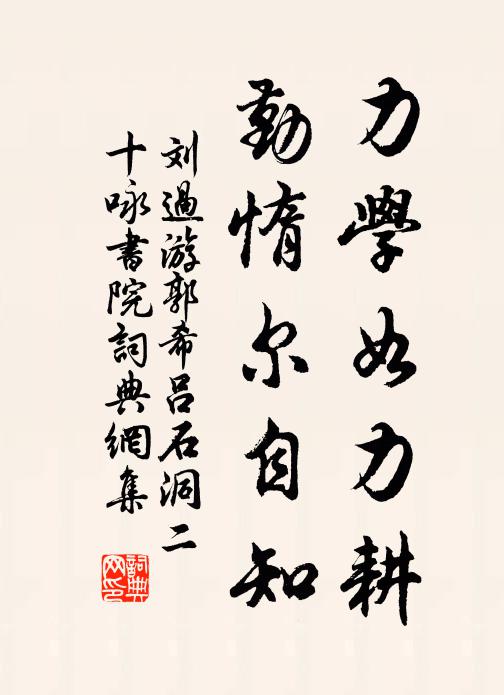 力學如力耕
勤惰尔自知
刘過游郭希吕石洞二
十咏書院詞典網集
詞典
网印